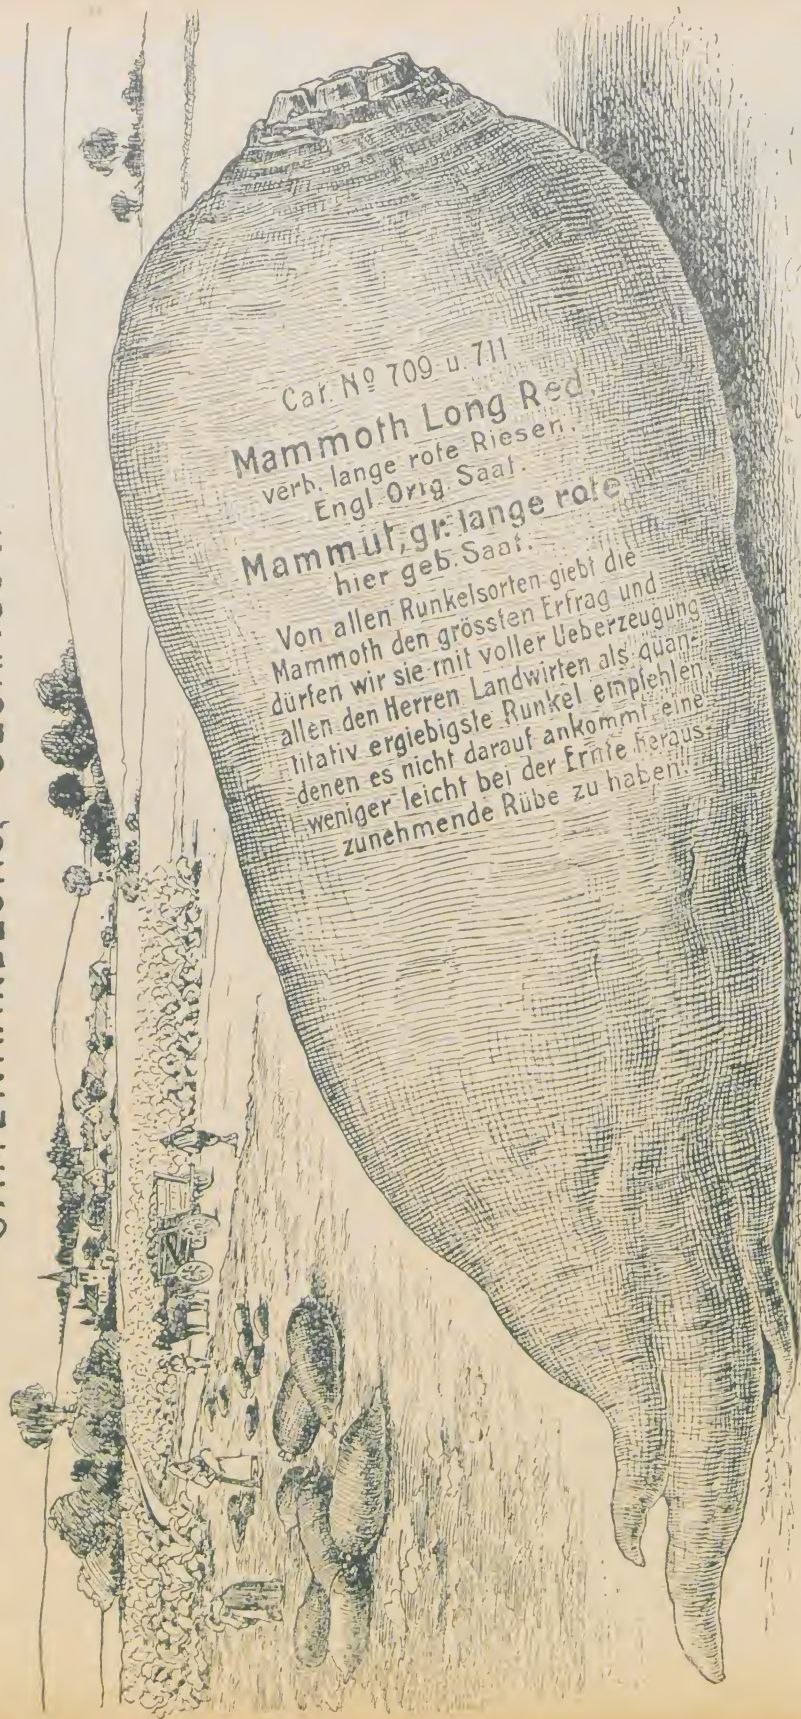 Cat. Nº 709 u. 711
Mammoth Long Red,
verb. lange rote Riesen.
Engl. Orig. Saat.
Mammut, gr. lange rote
hier geb. Saat.
Von allen Runkelsorten giebt die
Mammoth den grössten Ertrag und
dürfen wir sie mit voller Ueberzeugung
allen den Herren Landwirten als quan-
titativ ergiebigste Runkel empfehlen,
denen es nicht darauf ankommt eine
weniger leicht bei der Ernte heraus-
zunehmende Rübe zu haben.